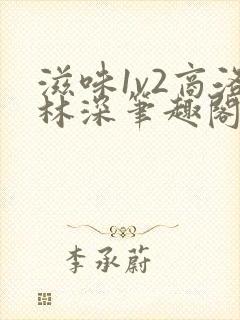 滋味1v2高洛
林深笔趣阁
李承蔚